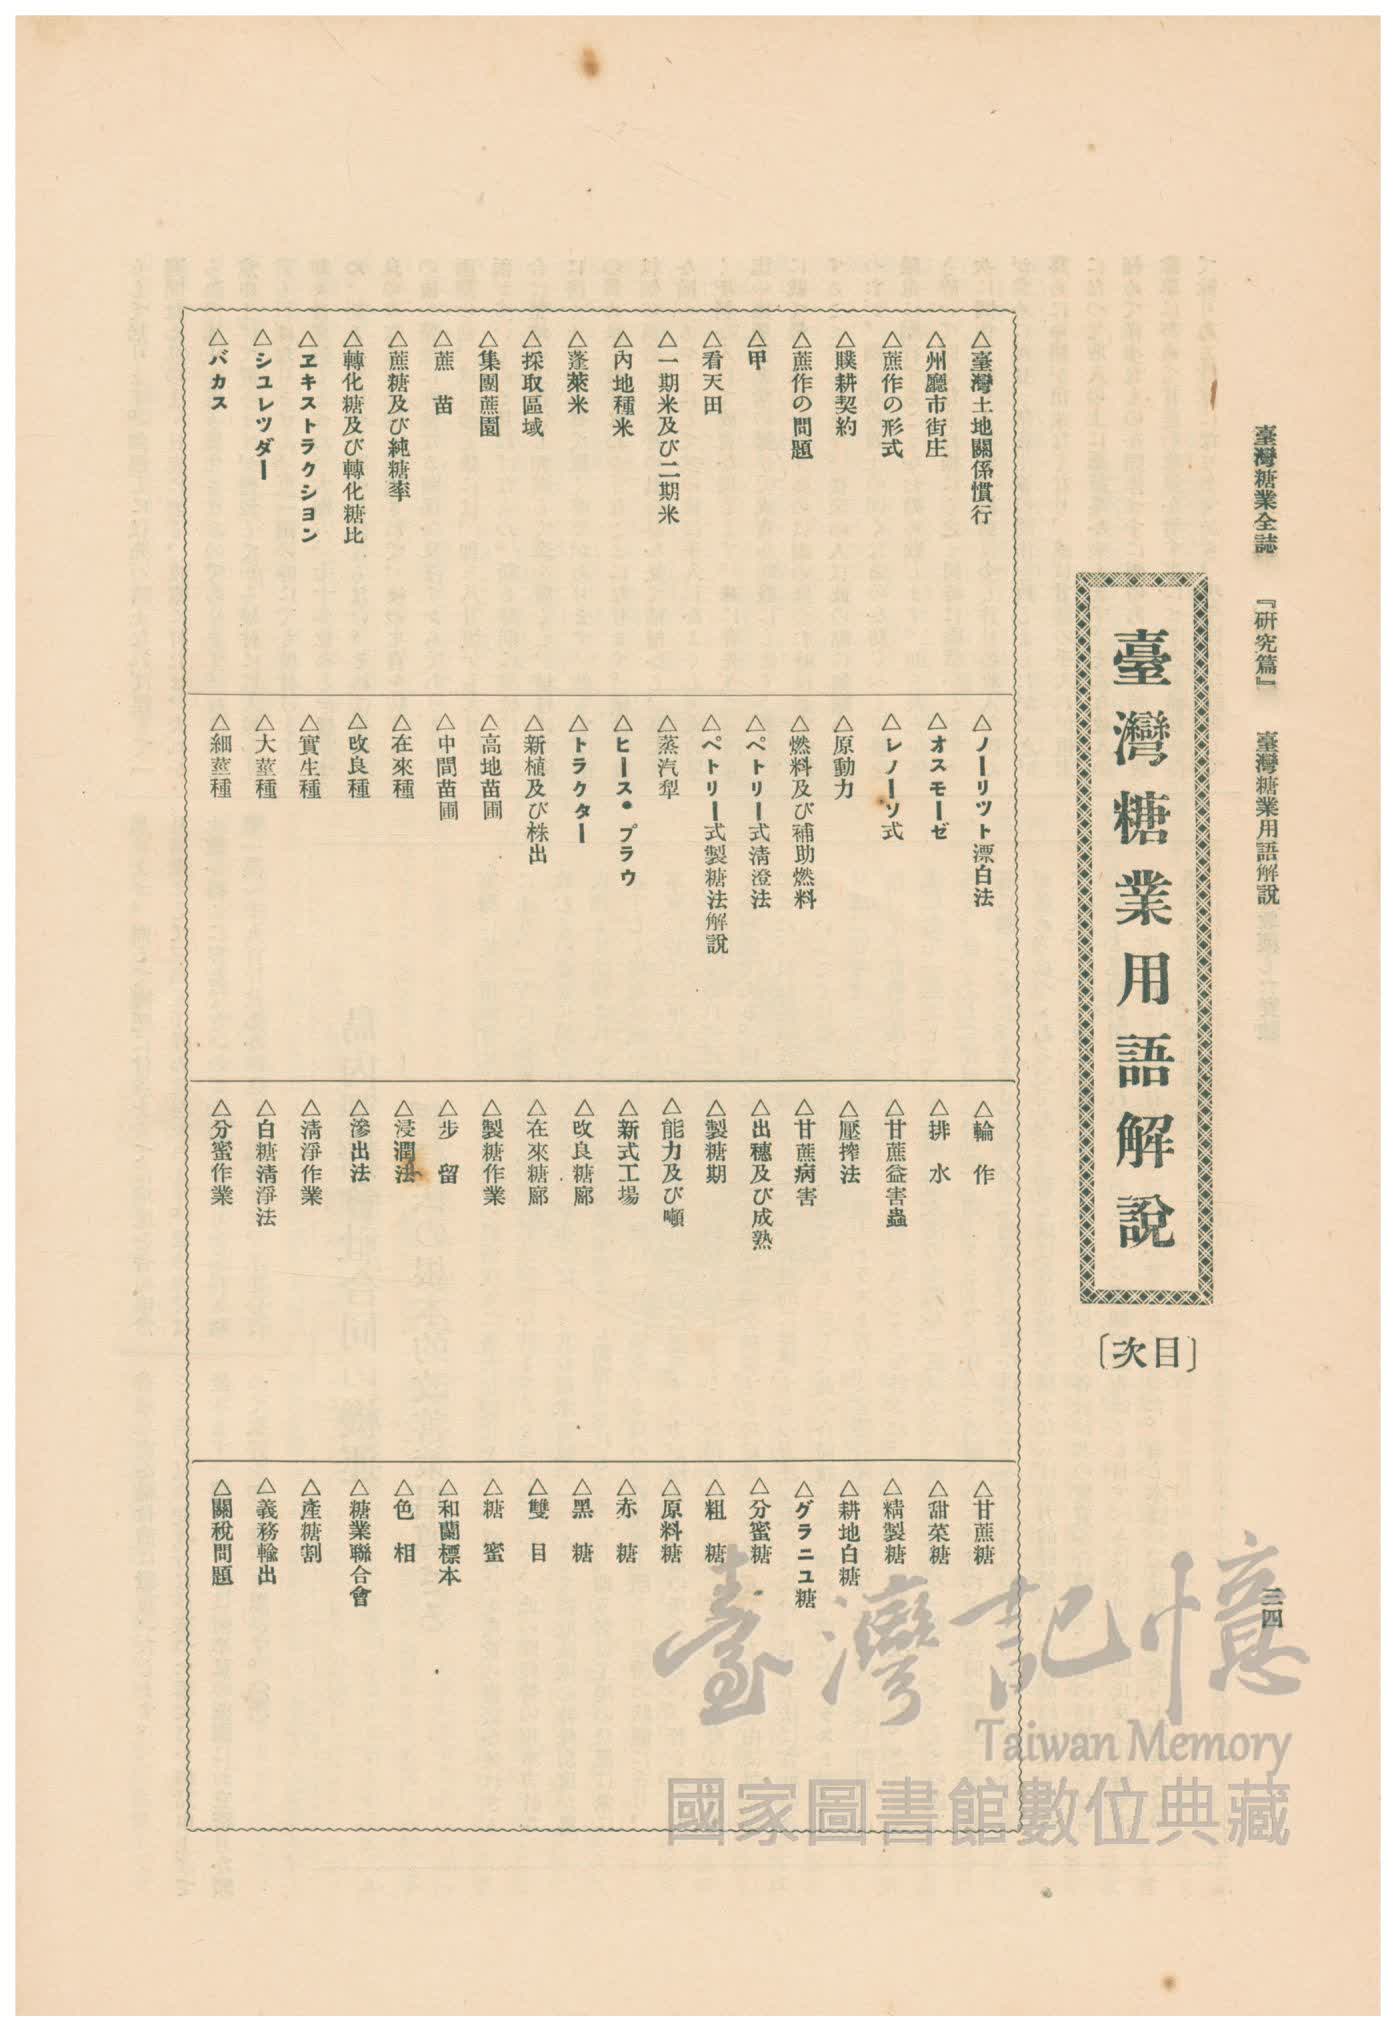 臺灣糖業全誌 『研究篇』 臺灣糖業用語解說
三四
臺灣糖業用語解說
〔次目〕
△臺灣土地關係慣行
△州廳市街庄
△蔗作の形式
△贌耕契約
△蔗作の問題
△甲
△看天田
△一期米及び二期米
△內地種米
△蓬萊米
△採取區域
△集團蔗園
△蔗苗
△蔗糖及び純糖率
△轉化糖及び轉化糖比
△ヱキストラクシヨン
△シユレツダー
△バカス
△ノーリツト漂白法
△オスモーゼ
△レノーソ式
△原動力
△燃料及び補助燃料
△ペトリー式清澄法
△ペトリー式製糖法解說
△蒸汽犁
△ヒース・プラウ
△トラクター
△新植及び株出
△高地苗圃
△中間苗圃
△在來種
△改良種
△實生種
△大莖種
△細莖種
△輪作
△排水
△甘蔗益害蟲
△壓搾法
△甘蔗病害
△出穗及び成熟
△製糖期
△能力及び噸
△新式工場
△改良糖廍
△在來糖廍
△製糖作業
△步留
△浸潤法
△滲出法
△淸淨作業
△白糖淸淨法
△分蜜作業
△甘蔗糖
△甜菜糖
△精製糖
△耕地白糖
△グラニユ糖
△分蜜糖
△粗糖
△原料糖
△赤糖
△黑糖
△雙目
△糖蜜
△和蘭標本
△色相
△糖業聯合會
△產糖割
△義務輸出
△關稅問題
臺灣記憶
Taiwan Memory
國家圖書館數位典藏